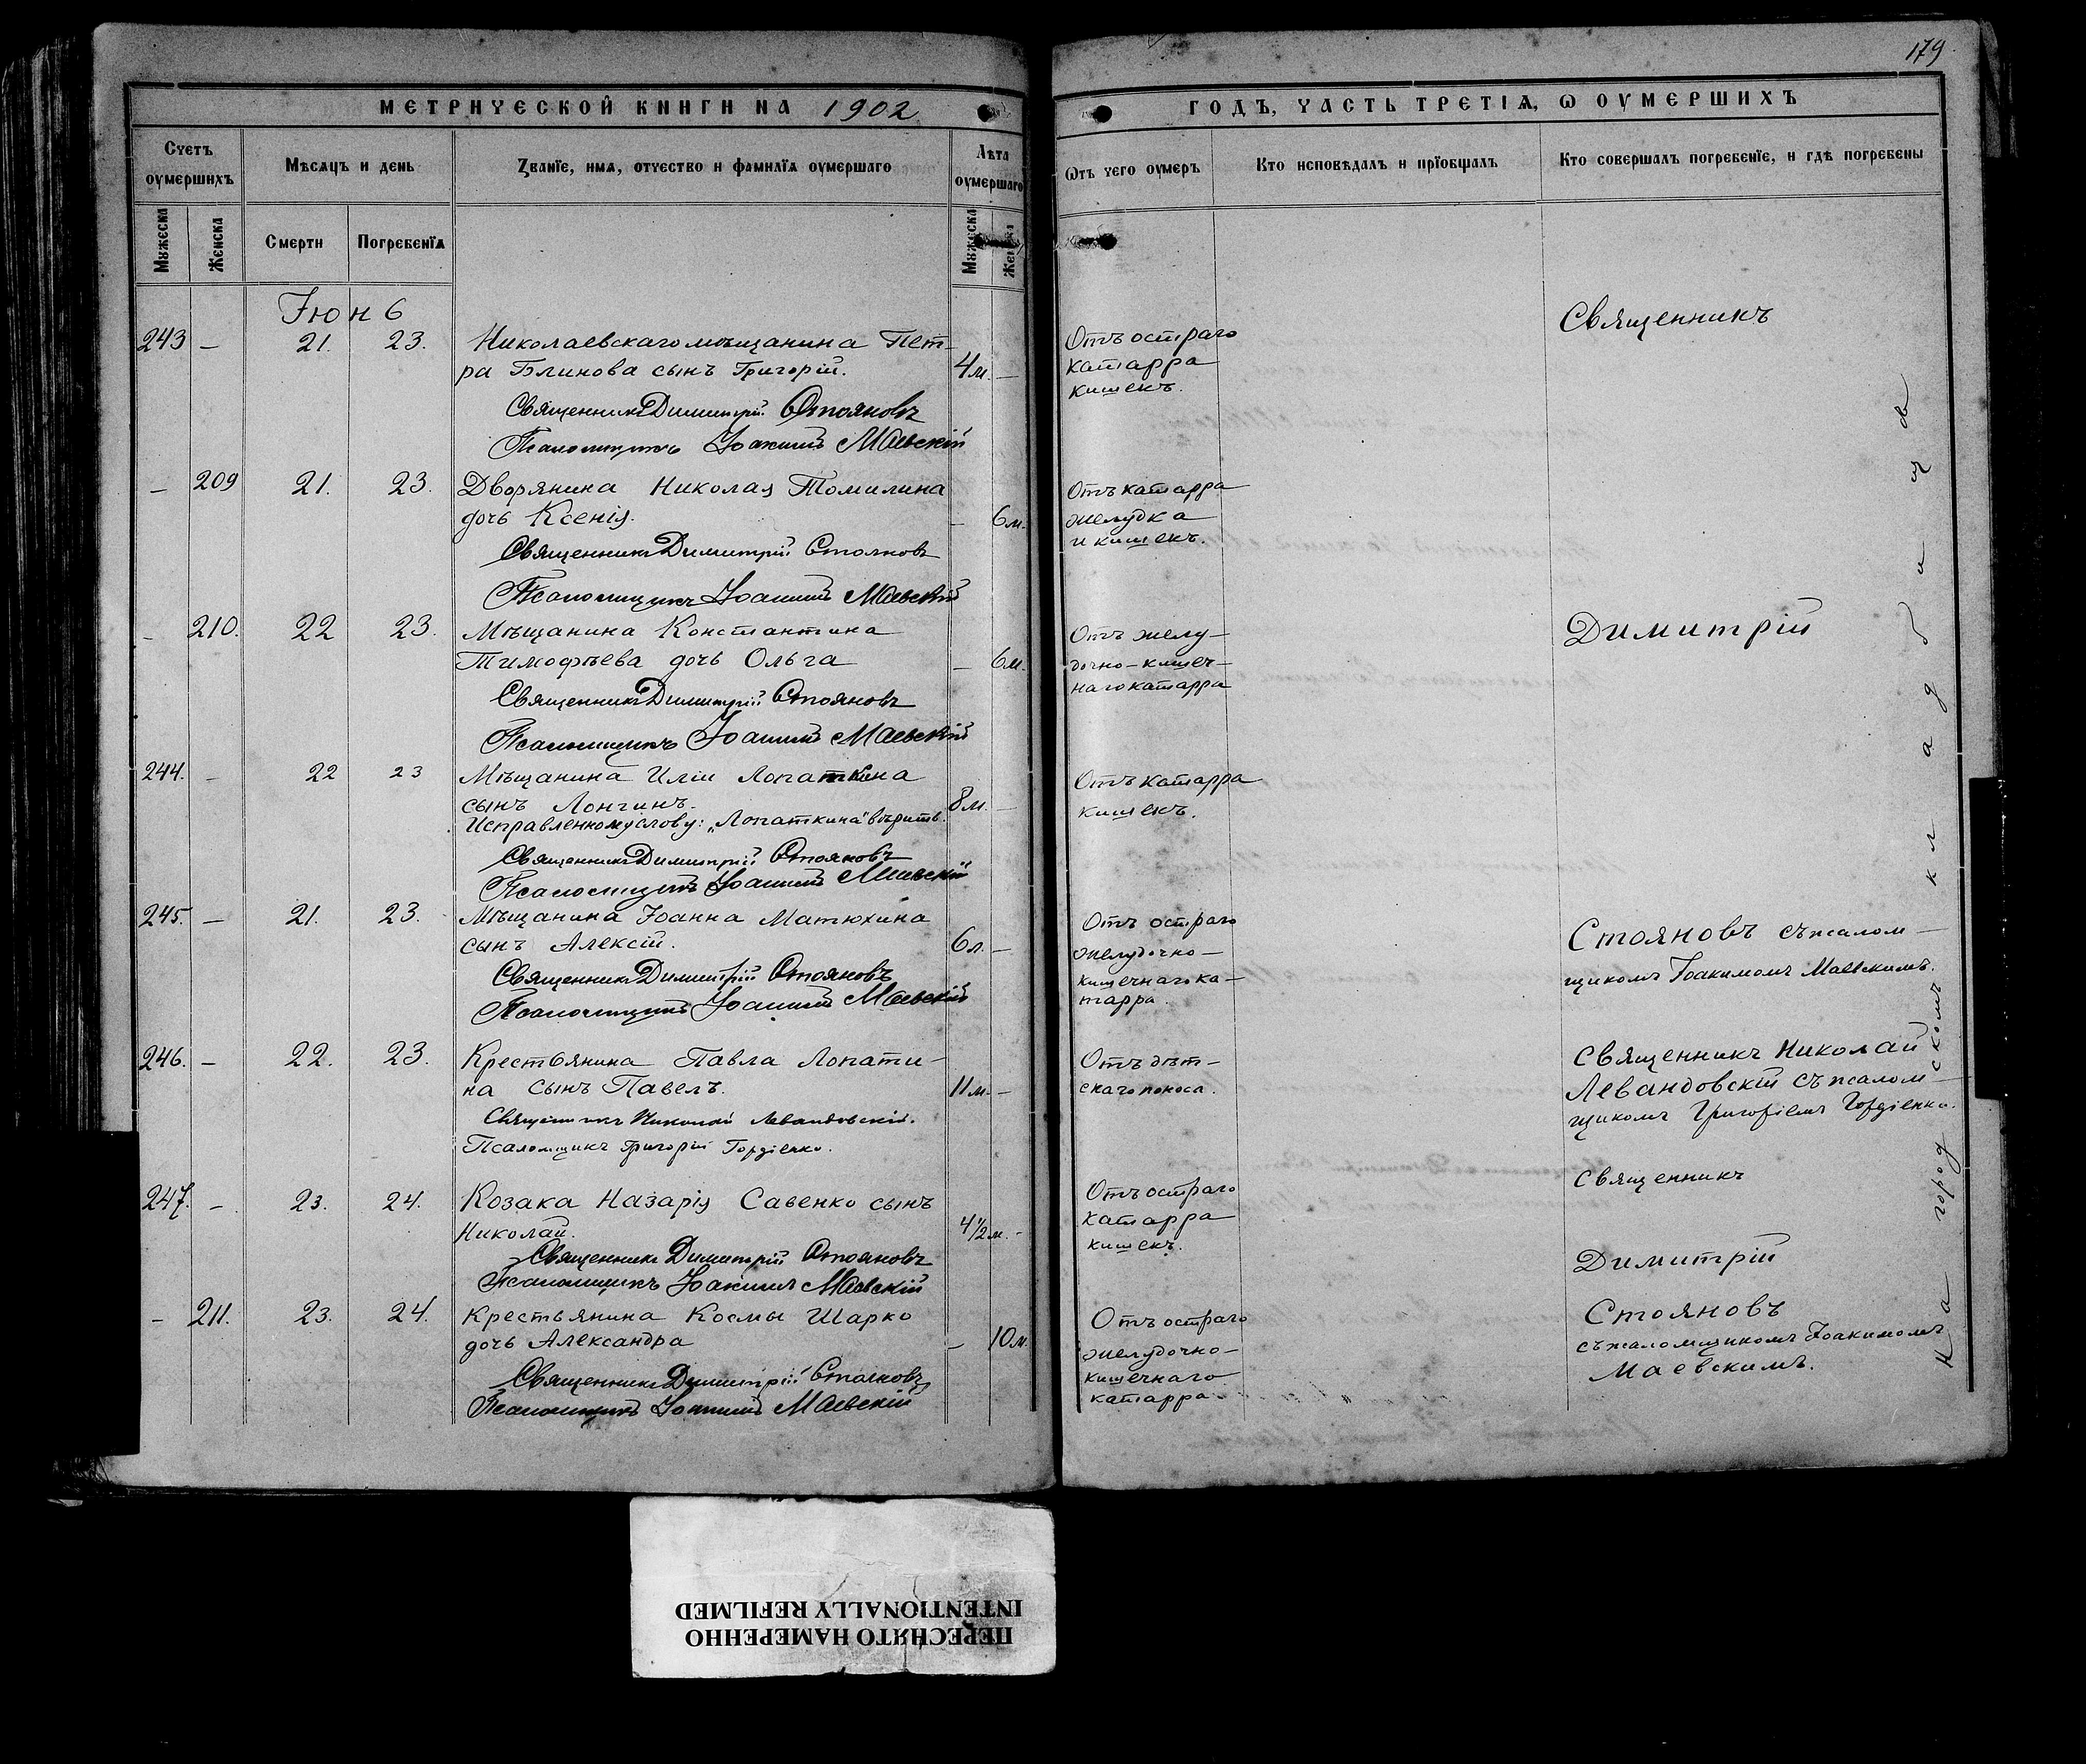 179
МЕТРИЧЕСКОЙ КНИГИ НА 1902
ГОДЪ, ЧАСТЬ ТРЕТІЯ, Ѡ ОУМЕРШИХЪ
Счетъ оумершихъ
Мѣсяцъ и день
Званїе, имя, отчество и фамилїя оумершаго
Лѣта оумершаго
Ѿтъ чего оумеръ
Кто исповѣдалъ и прїобщалъ
Кто совершалъ погребенїе, и гдѣ погребены
Мужеска
Женска
Смерти
Погребенїя
Мужеска
Женска
Іюнь
243 — 21. 23. Николаевскаго мѣщанина Пет-
ра Блинова сынъ Григорій. 4 м. —
Отъ остраго
катарра
кишекъ.
Священникъ Димитрій Стояновъ
Псаломщикъ Іоакимъ Маевскій
— 209 21. 23. Дворянина Николая Томилина
дочь Ксенія. — 6 м.
Отъ катарра
желудка
и кишекъ.
Священникъ Димитрій Стояновъ
Псаломщикъ Іоакимъ Маевскій
— 210. 22 23. Мѣщанина Константина
Тимофѣева дочь Ольга — 6 м.
Отъ желу-
дочно-кишеч-
наго катарра
Священникъ Димитрій Стояновъ
Псаломщикъ Іоакимъ Маевскій
244. — 22 23 Мѣщанина Иліи Лопаткина
сынъ Лонгинъ. 8 м. —
Исправленному слову: „Лопаткина" вѣрить.
Отъ катарра
кишекъ.
Священникъ Димитрій Стояновъ
Псаломщикъ Іоакимъ Маевскій
245. — 21. 23. Мѣщанина Іоанна Матюхина
сынъ Алексій. 6 л. —
Отъ остраго
желудочно-
кишечнаго ка-
тарра.
Священникъ Димитрій Стояновъ
Псаломщикъ Іоакимъ Маевскій
246. — 22. 23. Крестьянина Павла Лопати-
на сынъ Павелъ. 11 м. —
Отъ дѣт-
скаго поноса.
Священникъ Николай Левандовскій.
Псаломщикъ Григорій Гордіенко.
247. — 23. 24. Козака Назарія Савенко сынъ
Николай. 4 1/2 м. -
Отъ остраго
катарра
кишекъ.
Священникъ Димитрій Стояновъ
Псаломщикъ Іоакимъ Маевскій
— 211. 23. 24. Крестьянина Космы Шарко
дочь Александра — 10 м.
Отъ остраго
желудочно-
кишечнаго
катарра.
Священникъ Димитрій Стояновъ
Псаломщикъ Іоакимъ Маевскій
Священникъ
Димитрій
Стояновъ съ псалом-
щикомъ Іоакимомъ Маевскимъ.
Священникъ Николай
Левандовскій съ псалом-
щикомъ Григоріемъ Гордіенко.
Священникъ
Димитрій
Стояновъ
съ псаломщикомъ Іоакимомъ
Маевскимъ.
На городскомъ кладбищѣ
ПЕРЕСНЯТО НАМЕРЕННО
INTENTIONALLY REFILMED